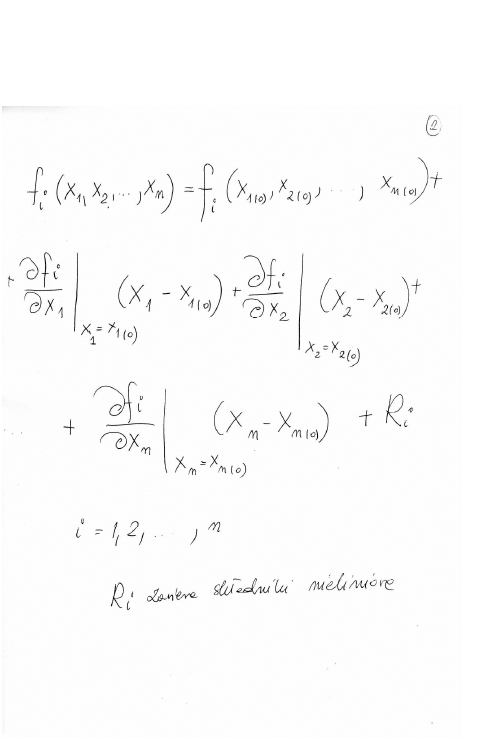 ②
fᵢ (x₁, x₂, ..., xₙ) = fᵢ (x₁₍₀₎, x₂₍₀₎, ..., xₙ₍₀₎) +
+ ∂fᵢ/∂x₁ |ₓ₁₌ₓ₁₍₀₎ (x₁ - x₁₍₀₎) + ∂fᵢ/∂x₂ |ₓ₂₌ₓ₂₍₀₎ (x₂ - x₂₍₀₎) +
... + ∂fᵢ/∂xₙ |ₓₙ₌ₓₙ₍₀₎ (xₙ - xₙ₍₀₎) + Rᵢ
i = 1, 2, ..., n
Rᵢ zawiera składniki nieliniowe